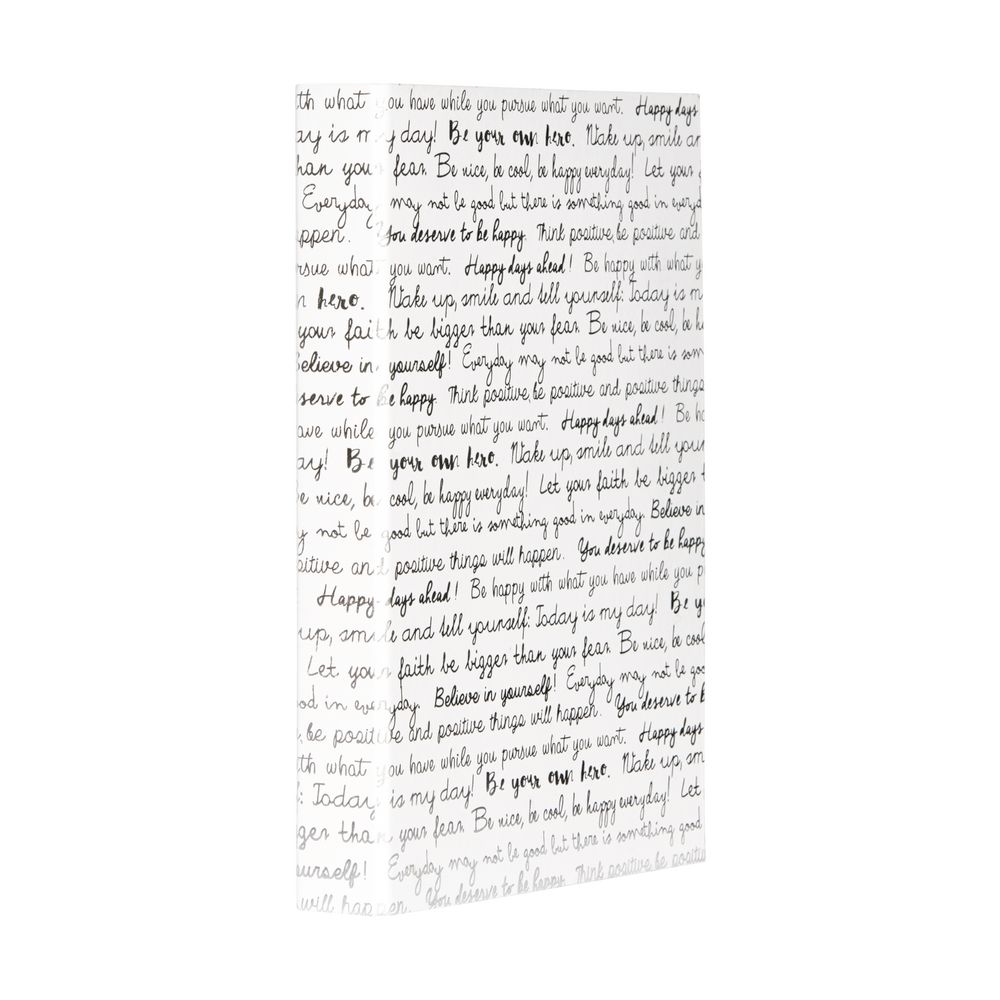 ith what you have while you pursue what you want. Happy days
ay is my day! Be your own hero. Wake up, smile an
han your fear. Be nice, be cool, be happy everyday! Let your
Everyday may not be good but there is something good in everyd
appen. You deserve to be happy. Think positive, be positive and
rsue what you want. Happy days ahead! Be happy with what y
n hero. Wake up, smile and tell yourself: Today is m
your faith be bigger than your fear. Be nice, be cool, be h
Believe in yourself! Everyday may not be good but there is som
serve to be happy. Think positive, be positive and positive things
ave while you pursue what you want. Happy days ahead! Be ha
ay! Be your own hero. Wake up, smile and tell your
e nice, be cool, be happy everyday! Let your faith be bigger t
y not be good but there is something good in everyday. Believe in
sitive and positive things will happen. You deserve to be happy
Happy days ahead! Be happy with what you have while you p
up, smile and tell yourself: Today is my day! Be y
Let your faith be bigger than your fear. Be nice, be cool
od in everyday. Believe in yourself! Everyday may not be goo
, be positive and positive things will happen. You deserve to b
ith what you have while you pursue what you want. Happy days
: Today is my day! Be your own hero. Wake up, sm
ger than your fear. Be nice, be cool, be happy everyday! Let
ourself! Everyday may not be good but there is something good
will happen. You deserve to be happy. Think positive, be positiv